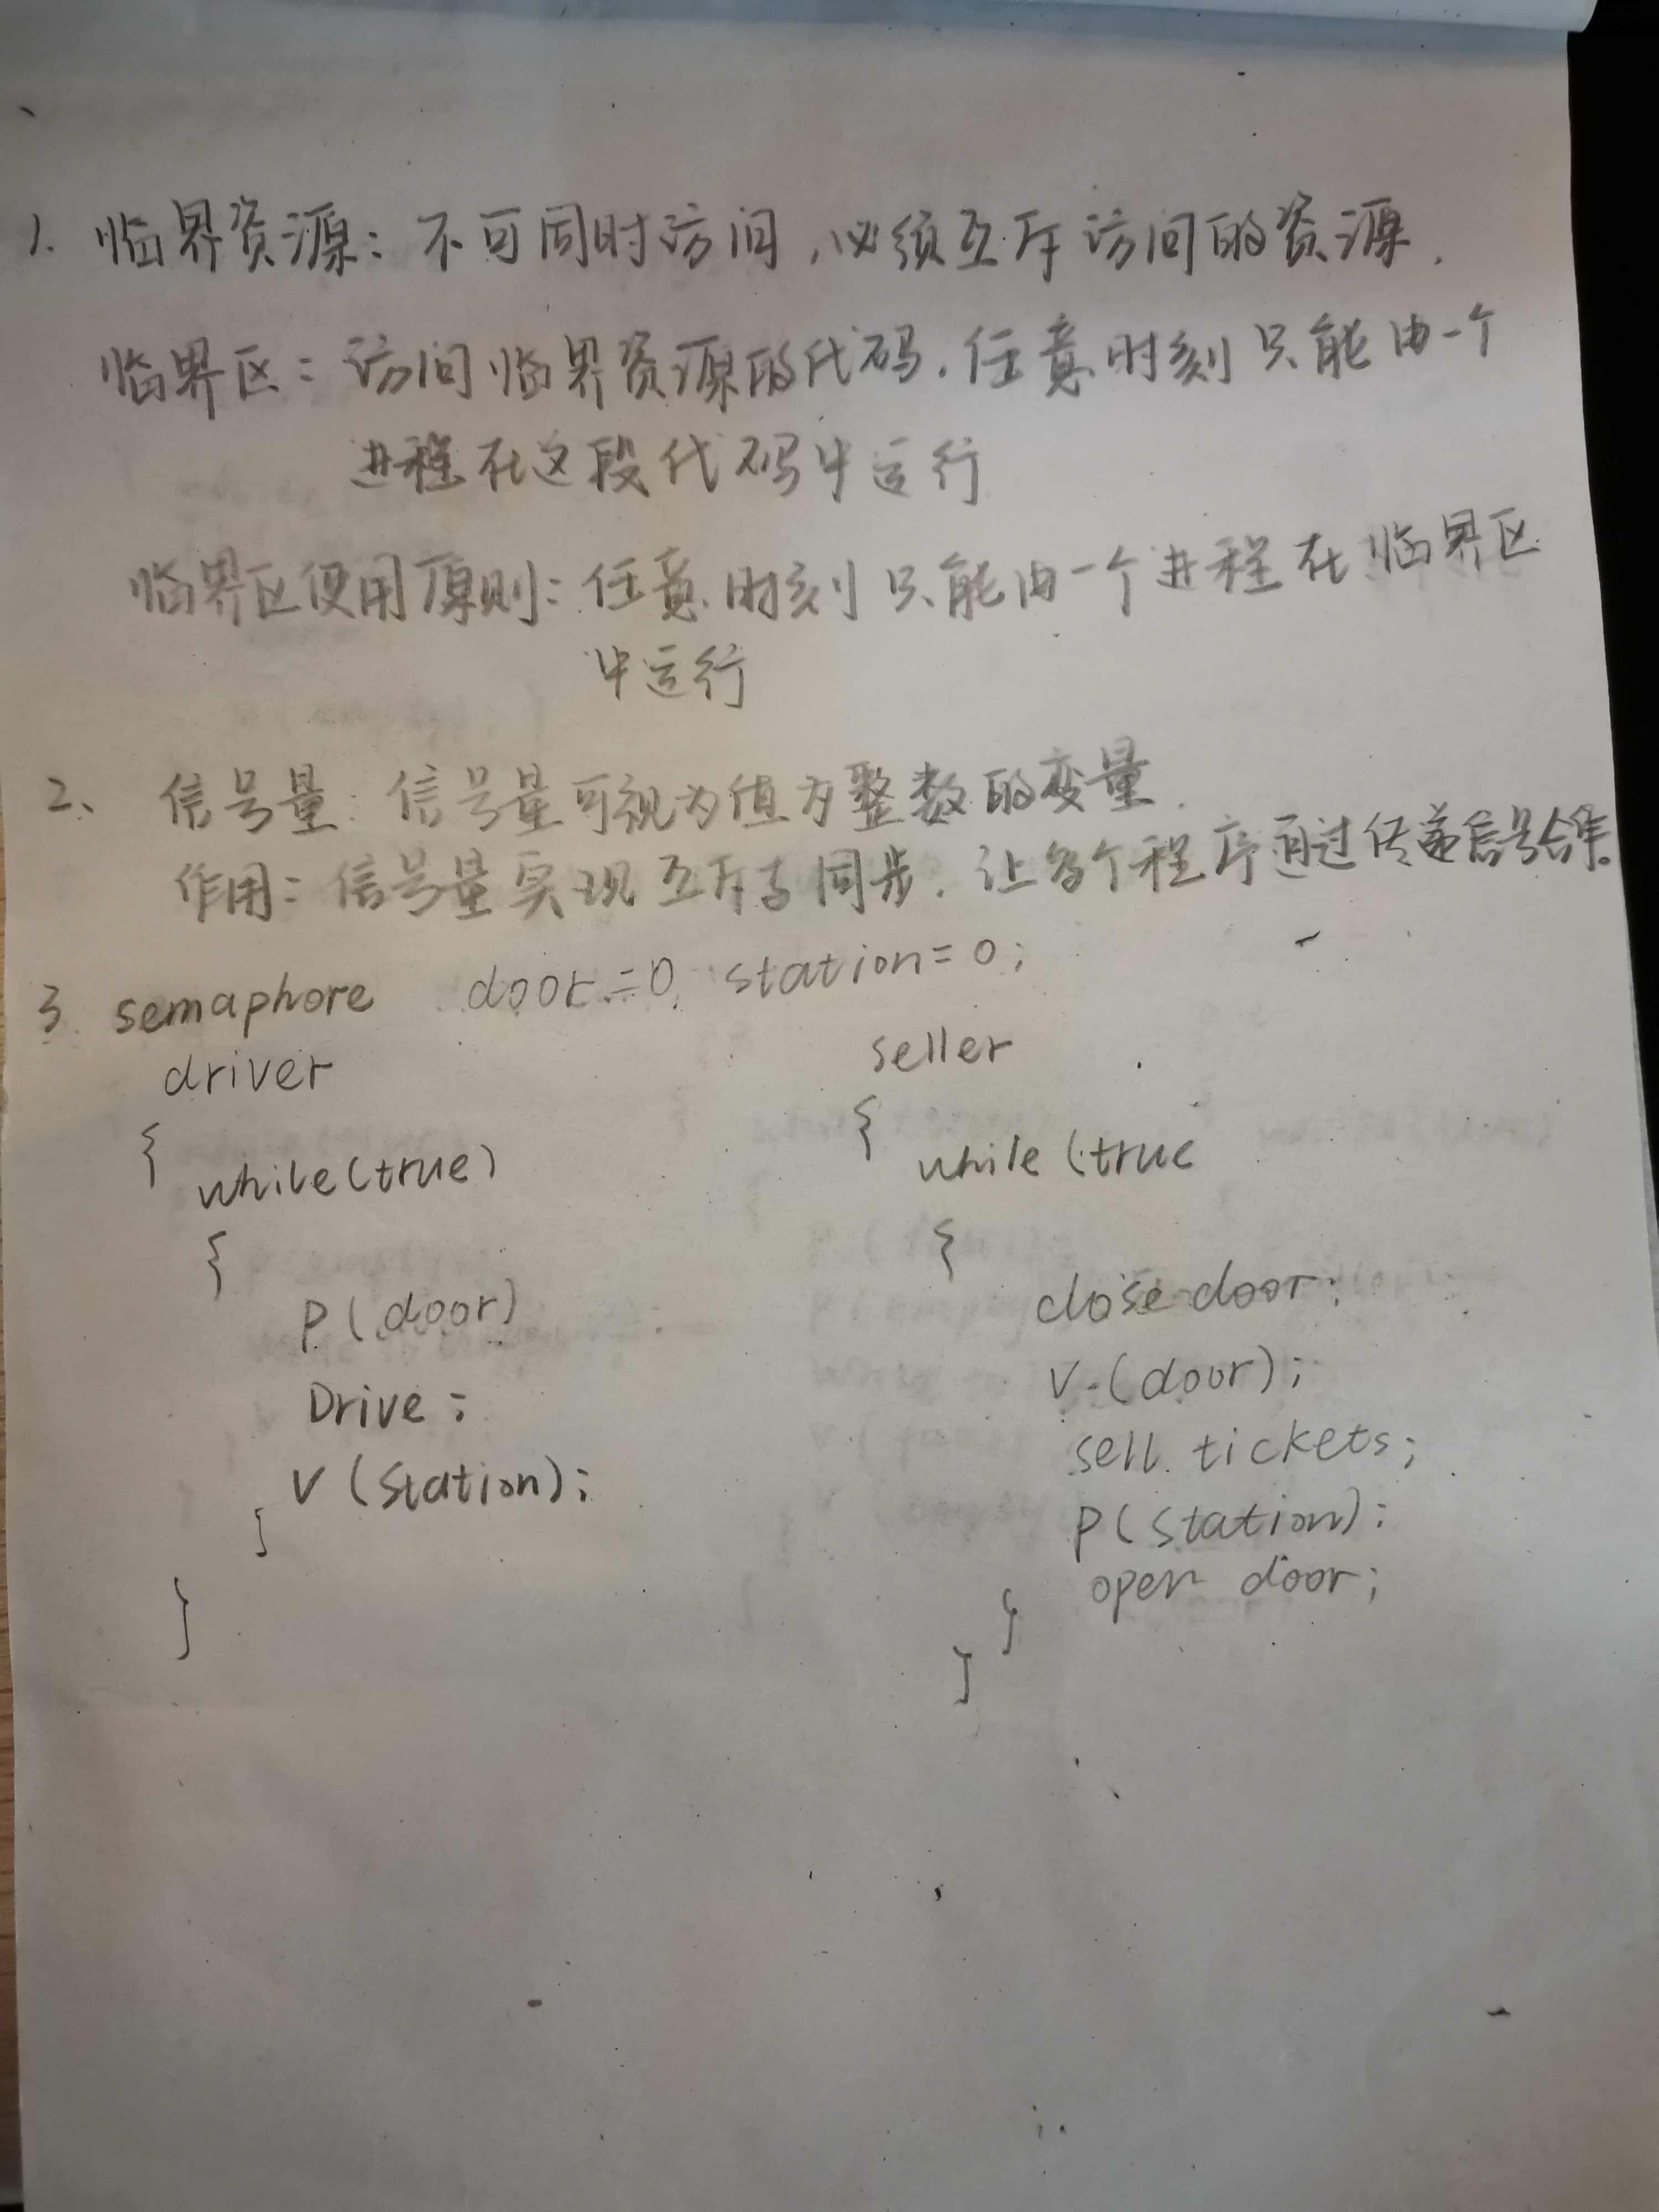 1. 临界资源：不可同时访问，必须互斥访问的资源.
临界区：访问临界资源的代码.任意时刻只能由一个
进程在这段代码中运行
临界区使用原则：任意时刻只能由一个进程在临界区
中运行
2、 信号量：信号量可视为值为整数的变量.
作用：信号量实现互斥与同步.让多个程序通过传递信号合作.
3. semaphore door=0, station=0;
driver
seller
{
while(true)
{
P(door)
Drive;
V(station);
}
}
{
while(true
{
close door;
V(door);
sell tickets;
P(station);
open door;
}
}